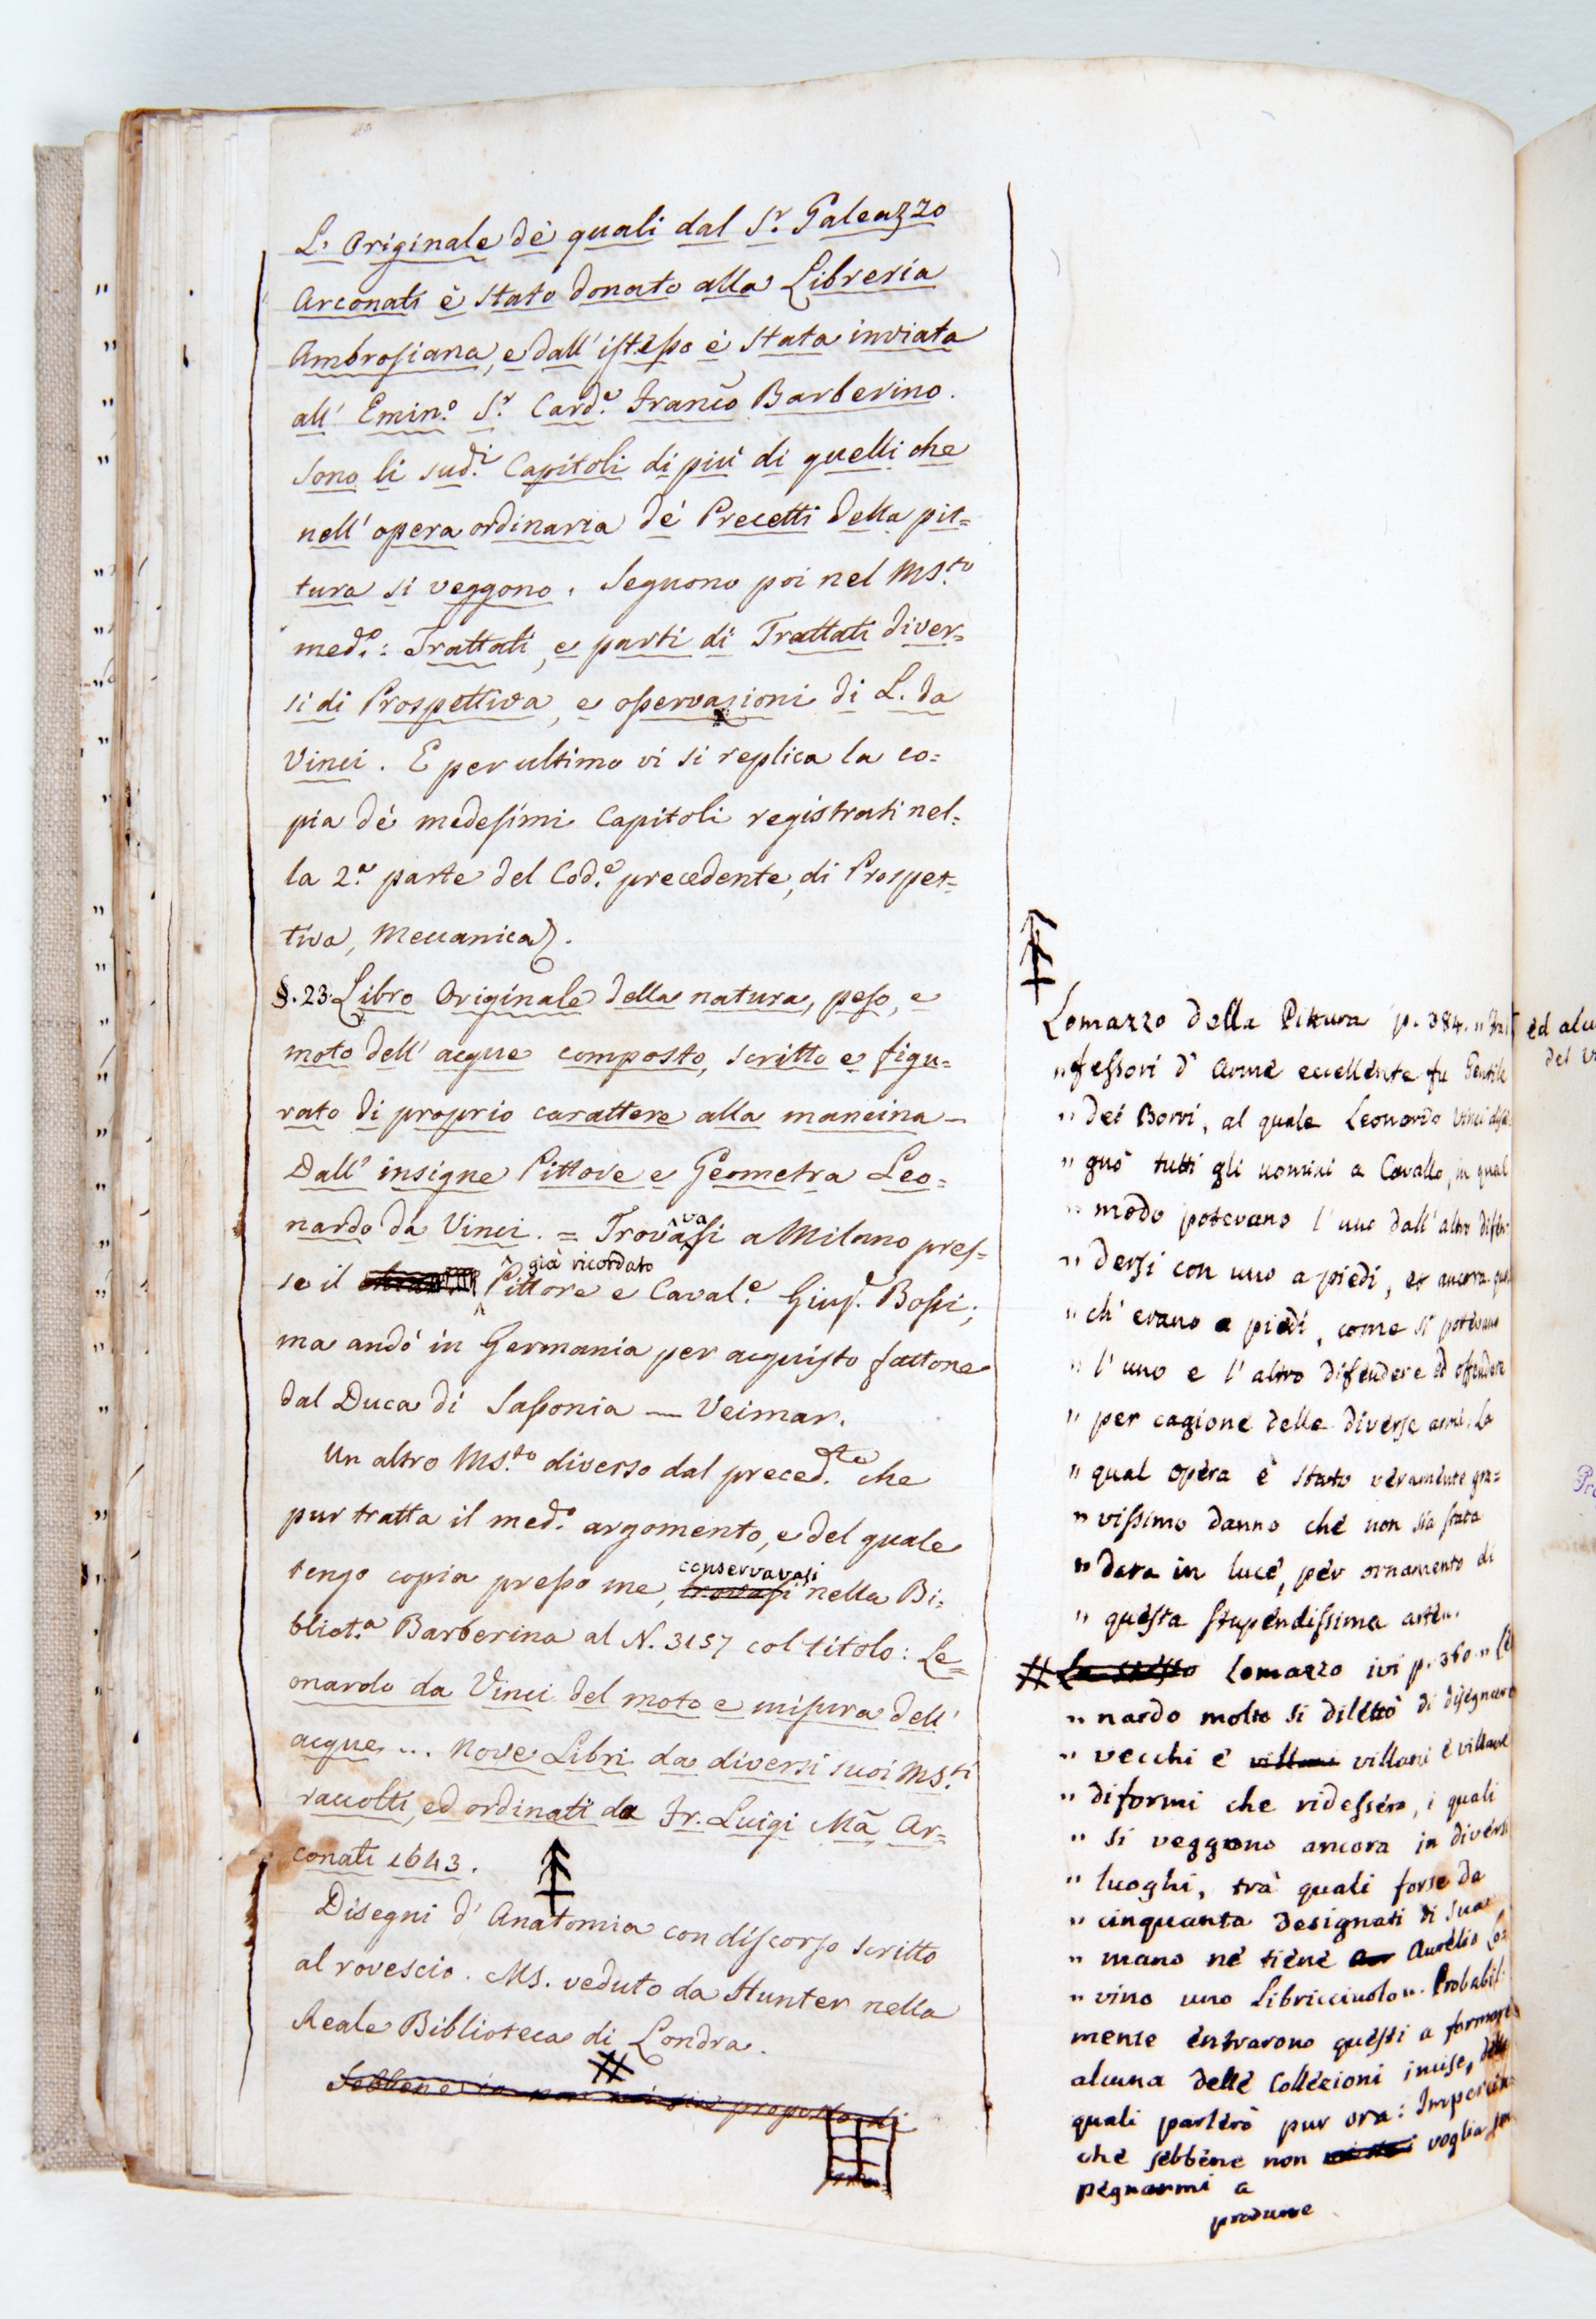 L' Originale dè quali dal S.r Galeazzo
Arconati è stato donato alla Libreria
Ambrosiana, e dall' istesso è stata inviata
all' Emin.o S.r Card.e Franc̃o Barberino.
sono li sud.i Capitoli di più di quelli che
nell' opera ordinaria dè Precetti della pit=
tura si veggono. Seguono poi nel MS.to
med.o: Trattati, e parti di Trattati diver=
si di Prospettiva, e osservazioni di L. da
Vinci. E per ultimo vi si replica la co=
pia dè medesimi Capitoli registrati nel=
la 2.a parte del Cod.e precedente, di Prospet=
tiva, Meccanica.
§. 23. Libro Originale della natura, peso, e
moto dell' acque composto, scritto e figu=
rato di proprio carattere alla mancina —
Dall' insigne Pittore e Geometra Leo=
nardo da Vinci. = Trovavasi a Milano pres=
già ricordato
so il Pittore e Caval.e Gius.e Bossi;
ma andò in Germania per acquisto fattone
dal Duca di Sassonia — Veimar.
Un altro MS.to diverso dal preced.te che
pur tratta il med.o argomento, e del quale
conservavasi
tengo copia presso me, trovasi nella Bi=
bliot.a Barberina al N. 3157 col titolo: Le=
onardo da Vinci del moto e misura dell'
acque ... Nove Libri da diversi suoi MS.ti
raccolti, ed ordinati da Fr. Luigi Mã Ar=
conati 1643.
Disegni d' Anatomia con discorso scritto
al rovescio. MS. veduto da Hunter nella
Reale Biblioteca di Londra.
#
Sebbene io non mi sia proposto di
Lomazzo della Pittura p. 384. "
" fessori d' arme eccellente fu Gentile
" dei Borri, al quale Leonardo Vinci dise
" gnò tutti gli uomini a Cavallo, in qual
" modo potevano l' uno dall' altro difen
" dersi con uno a piedi, et ancora quel
" ch' erano a piedi, come si potevano
" l' uno e l' altro difendere ed offendere
" per cagione delle diverse armi. La
" qual opera è stato veramente gra=
" vissimo danno che non sia stata
" data in luce, per ornamento di
" questa stupendissima arte".
# Lo stesso Lomazzo ivi p. 360. " Leo
" nardo molto si dilettò di disegnare
" vecchi e villani villani e villane
" diformi che ridessero, i quali
" si veggono ancora in diversi
" luoghi, trà quali forse da
" cinquanta designati di sua
" mano ne tiene Aurelio Lo=
" vino uno Libricciuolo". Probabil=
mente entrarono questi a formare
alcuna delle Collezioni incise, delle
quali parlerò pur ora: Imperciò
che sebbene non voglia im
pegnarmi a
produrre
ed alcu
del